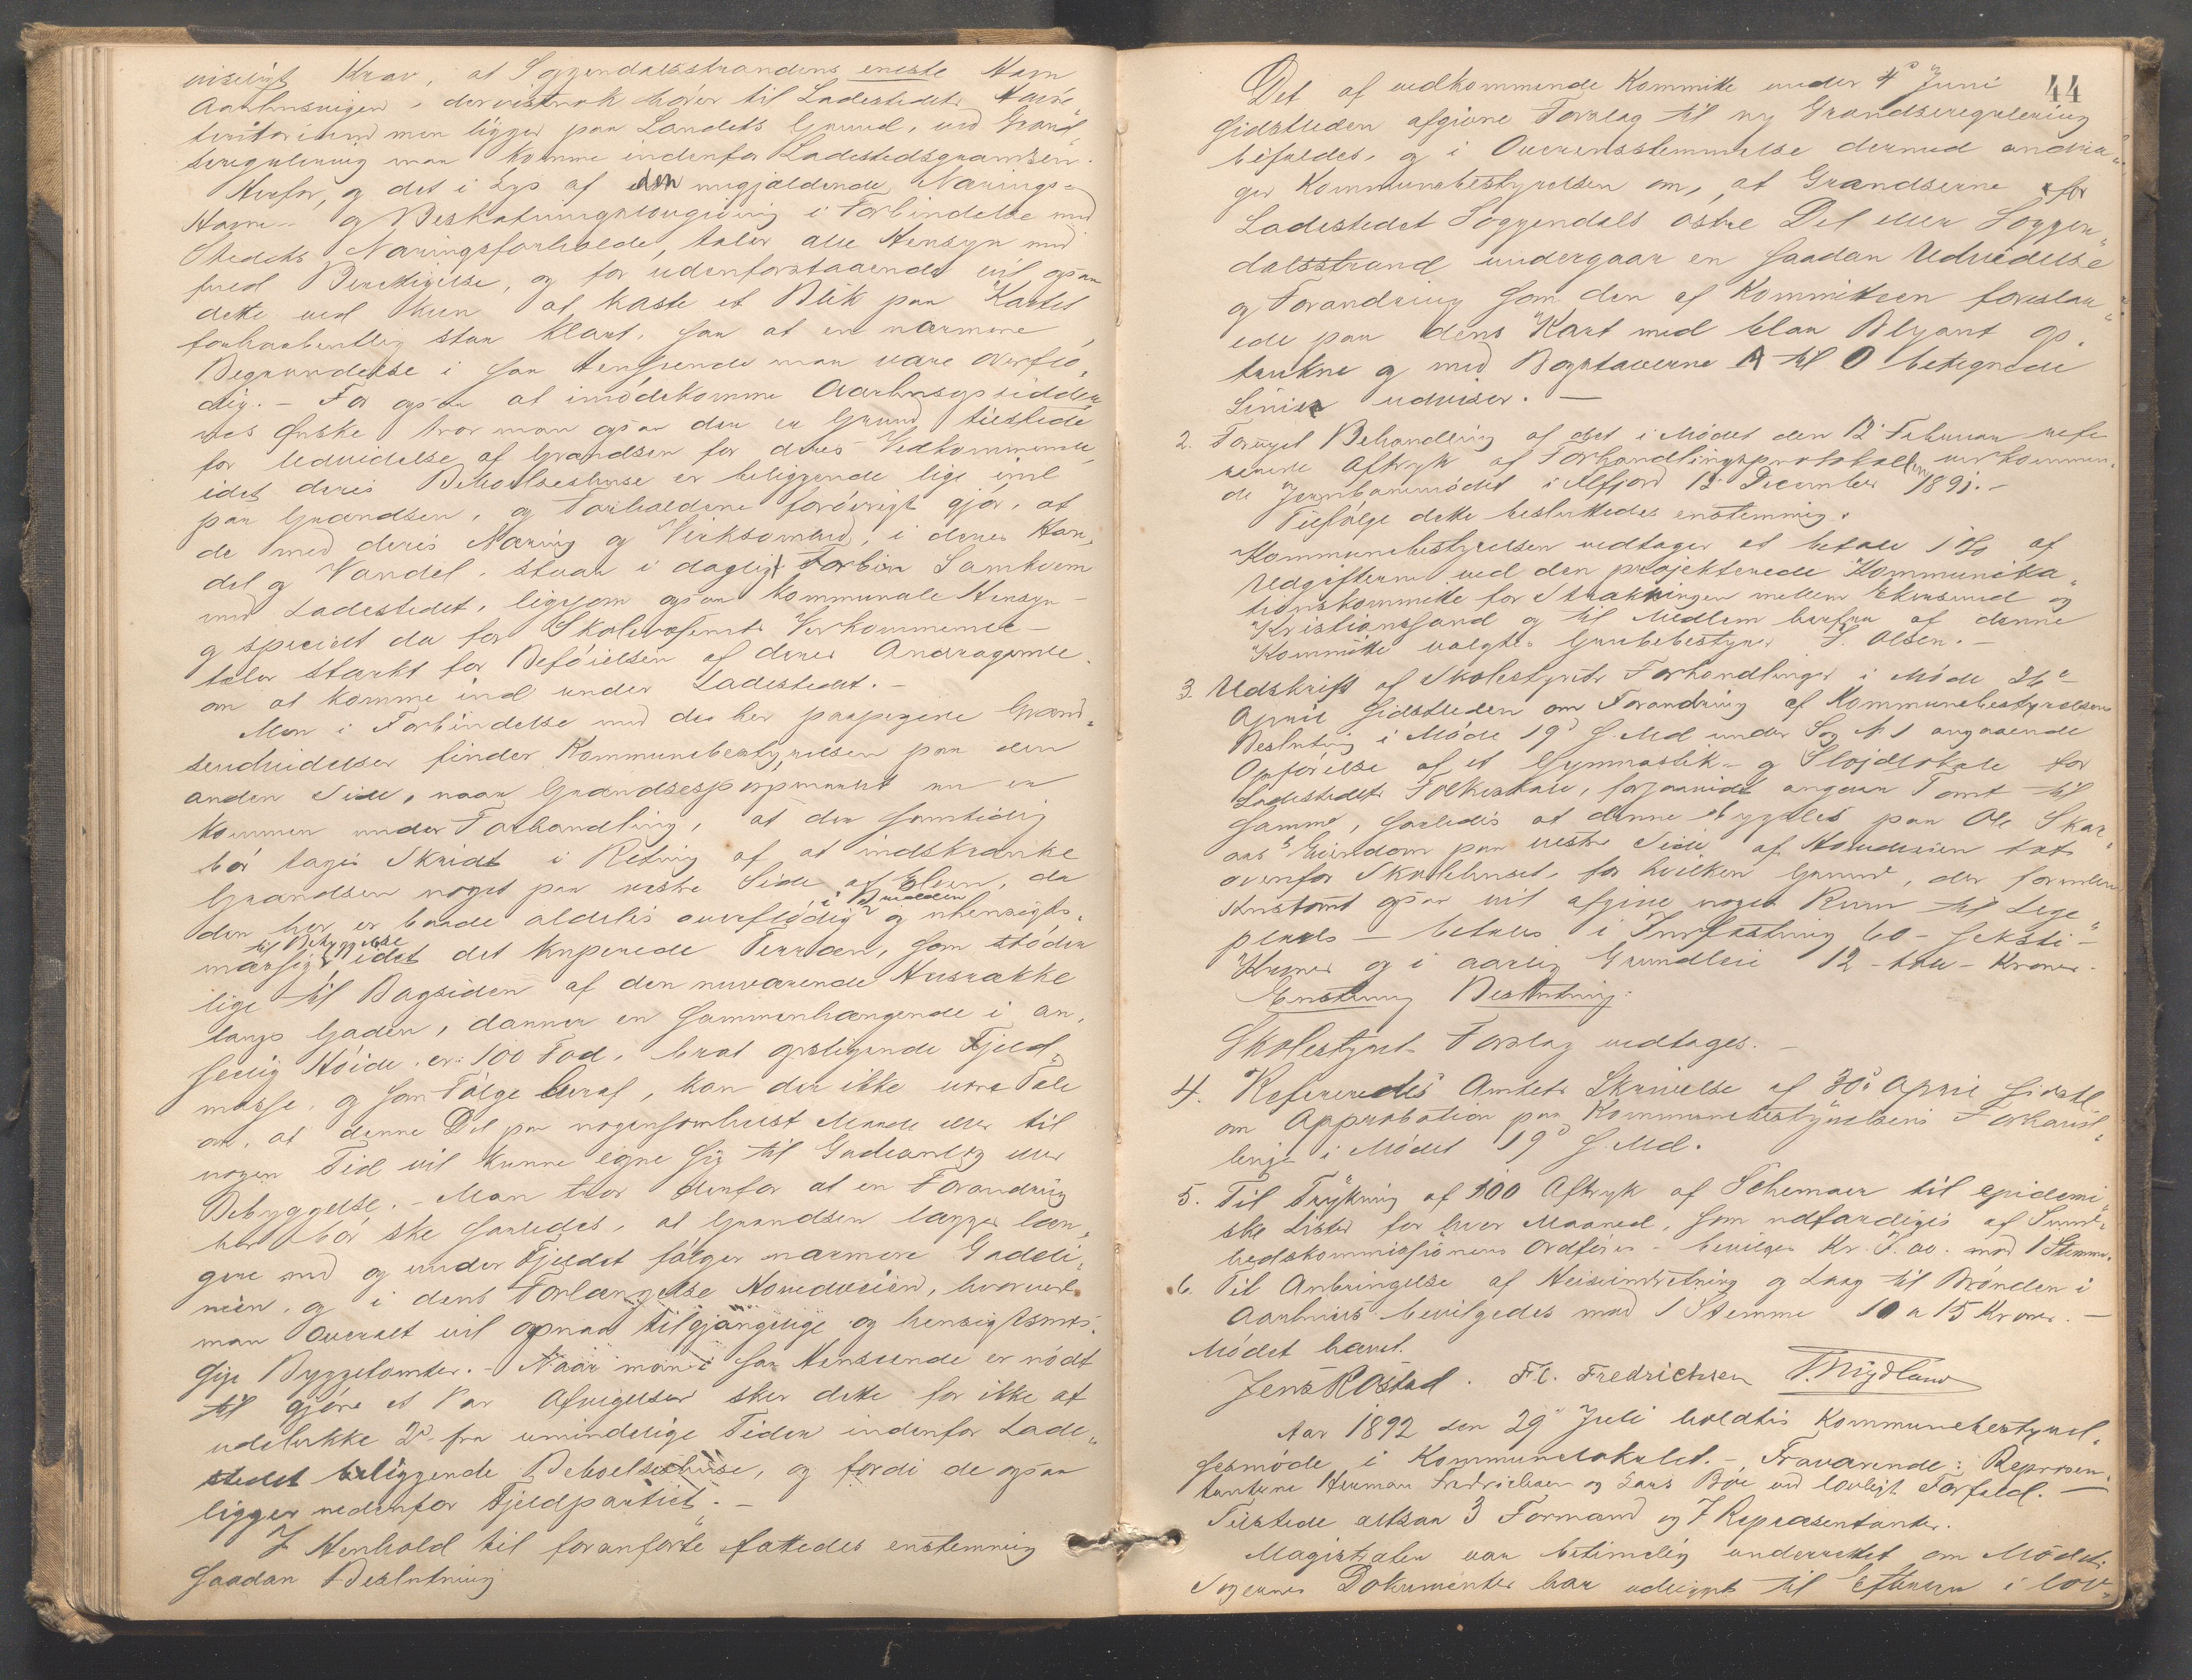 viseligt Krav, at Soggendalsstrandens eneste Havn
Aarhusvigen, dervistnok hører til Ladestedets Havne„
territorium men ligger paa Landets Grund, ved Grænd„
seregulering maa komme indenfor Ladestedsgrændsen.
Herfor, og det i Lys af den nugjældende Nærings-
Havne- og Beskatningslovgivning i Forbindelse med
Stedets Næringsforholde, taler alle Hensyn med
fuld Berettigelse, og for udenforstaaende vil ogsaa
dette ved kun at kaste et Blik paa Kartet
forhaabentlig staa klart, saa at en nærmere
Begrundelse i saa Henseende maa være overflø„
dig. - For ogsaa at imødekomme Aarhusopsidder„
nes Ønske tror man ogsaa der er Grund tilstede
for Udvidelse af Grændsen for deres Vedkommende,
idet deres Beboelseshuse er beliggende lige ind
paa Grændsen, og Forholdene forøvrigt gjør, at
de med deres Næring og Virksomhed, i deres Han„
del og Vandel, staar i dagligt Samkvem
med Ladestedet, ligesom ogsaa kommunale Hensyn -
og specielt da for Skolevæsenets Vedkommende -
taler stærkt for Beføielsen af deres Andragende
om at komme ind under Ladestedet. -
Men i Forbindelse med de her paapegede Grænd„
seudvidelser finder Kommunebestyrelsen paa den
anden Side, naar Grændsespørgsmaalet nu er
kommen under Forhandling, at der samtidig
bør tages Skridt i Retning af at indskrænke
Grændsen noget paa vestre Side af Elven, da
den her er baade aldeles overflødig og uhensigts„
mæssig til Bebyggelse idet det kuperede Terræn, som støder
lige til Bagsiden af den nuværende Husrække
langs Gaden, danner en sammenhængende i an„
seelig Høide, ca: 100 Fod, brat opstigende Fjeld„
masse, og som Følge heraf, kan der ikke være Tale
om, at denne Del paa nogensomhelst Maade eller til
nogen Tid vil kunne egne sig til Gadeanlæg eller
Bebyggelse. - Man tror derfor at en Forandring
her bør ske saaledes, at Grændsen lægges læn„
gere ned og under Fjeldet følger nærmere Gadeli„
nien, og i dens Forlængelse Hovedveien, hvorved
man overalt vil opnaa tilgjængelige og hensigtsmæs„
sige Byggetomter. - Naar man i saa Henseende er nødt
til gjøre et Par Afvigelser sker dette for ikke at
udelukke 2de fra umindelige Tider indenfor Lade„
stedet beliggende Beboelseshuse, og fordi de ogsaa
ligger nedenfor Fjeldpartiet. -
I Henhold til foranførte fattedes enstemmig
saadan Beslutning
44
Det af vedkommende Kommitte under 4de Juni
sidstleden afgivne Forslag til ny Grændseregulering
bifaldes, og i Overensstemmelse dermed andra„
ger Kommunebestyrelsen om, at Grændserne for
Ladestedet Soggendals østre Del eller Soggen„
dalsstrand undergaar en saadan Udvidelse
og Forandring som den af Kommitteen foreslaa„
ede paa dens Kart med blaa Blyant op„
trukne og med Bogstaverne A til O betegnede
Linier udviser. -
2. Foretoges Behandling af det i Mødet den 12te Februar refe
rerede Aftryk af Forhandlingsprotokollen vedkommen„
de Jernbanemødet i Flekkefjord 15 December 1891. -
Tilfølge dette besluttedes enstemmig.
Kommunebestyrelsen vedtager at betale 1% af
Udgifterne ved den projekterede Kommunika„
tionskommitte for Strækningen mellem Ekersund og
Kristianssand og til Medlem herfra af denne
Kommitte valgtes Grubebestyrer S. Olsen. -
3. Udskrift af Skolestyrets Forhandlinger i Møde 26de
April sidstleden om Forandring af Kommunebestyrelsens
Beslutning i Møde 19de s. Md under Sag № 1 angaaende
Opførelse af et Gymnastik- og Sløjdlokale for
Ladestedets Folkeskole, forsaavidt angaar Tomt til
samme, saaledes at denne bygsles paa Ole Skar„
aas's Eiendom paa vestre Side af Hovedveien tæt
ovenfor Skolehuset, for hvilken Grund, der foruden
Hustomt ogsaa vil afgive noget Rum til Lege„
plads - betales i Indfæstning 60 - seksti -
Kroner og i aarlig Grundleie 12 - tolv - Kroner.
Enstemmig Beslutning:
Skolestyrets Forslag vedtages. -
4. Refereredes Amtets Skrivelse af 30te April sidstl.
om Approbation paa Kommunebestyrelsens Forhand„
linger i Mødet 19de s. Md.
5. Til Trykning af 100 Aftryk af Schemaer til epidemi„
ske Lister for hver Maaned, som udfærdiges af Sund„
hedskommissionens Ordfører - bevilges Kr. 7.00. mod 1 Stemme.
6. Til Anbringelse af Heiseindretning og Laag til Brønden i
Aarhus bevilgedes mod 1 Stemme 10 a 15 Kroner. -
Mødet hævet.
Jens K Østad. F.C. Fredrichsen T. Mydland
Aar 1892 den 29de Juli holdtes Kommunebestyrel„
sesmøde i Kommunelokalet. - Fraværende: Repræsen„
tanterne Herman Fredrichsen og Lars Bøe ved lovligt Forfald. -
Tilstede altsaa 3 Formænd og 7 Repræsentanter.
Magistraten var betimelig underrettet om Mødet.
Sagernes Dokumenter har udligget til Eftersyn i lov„